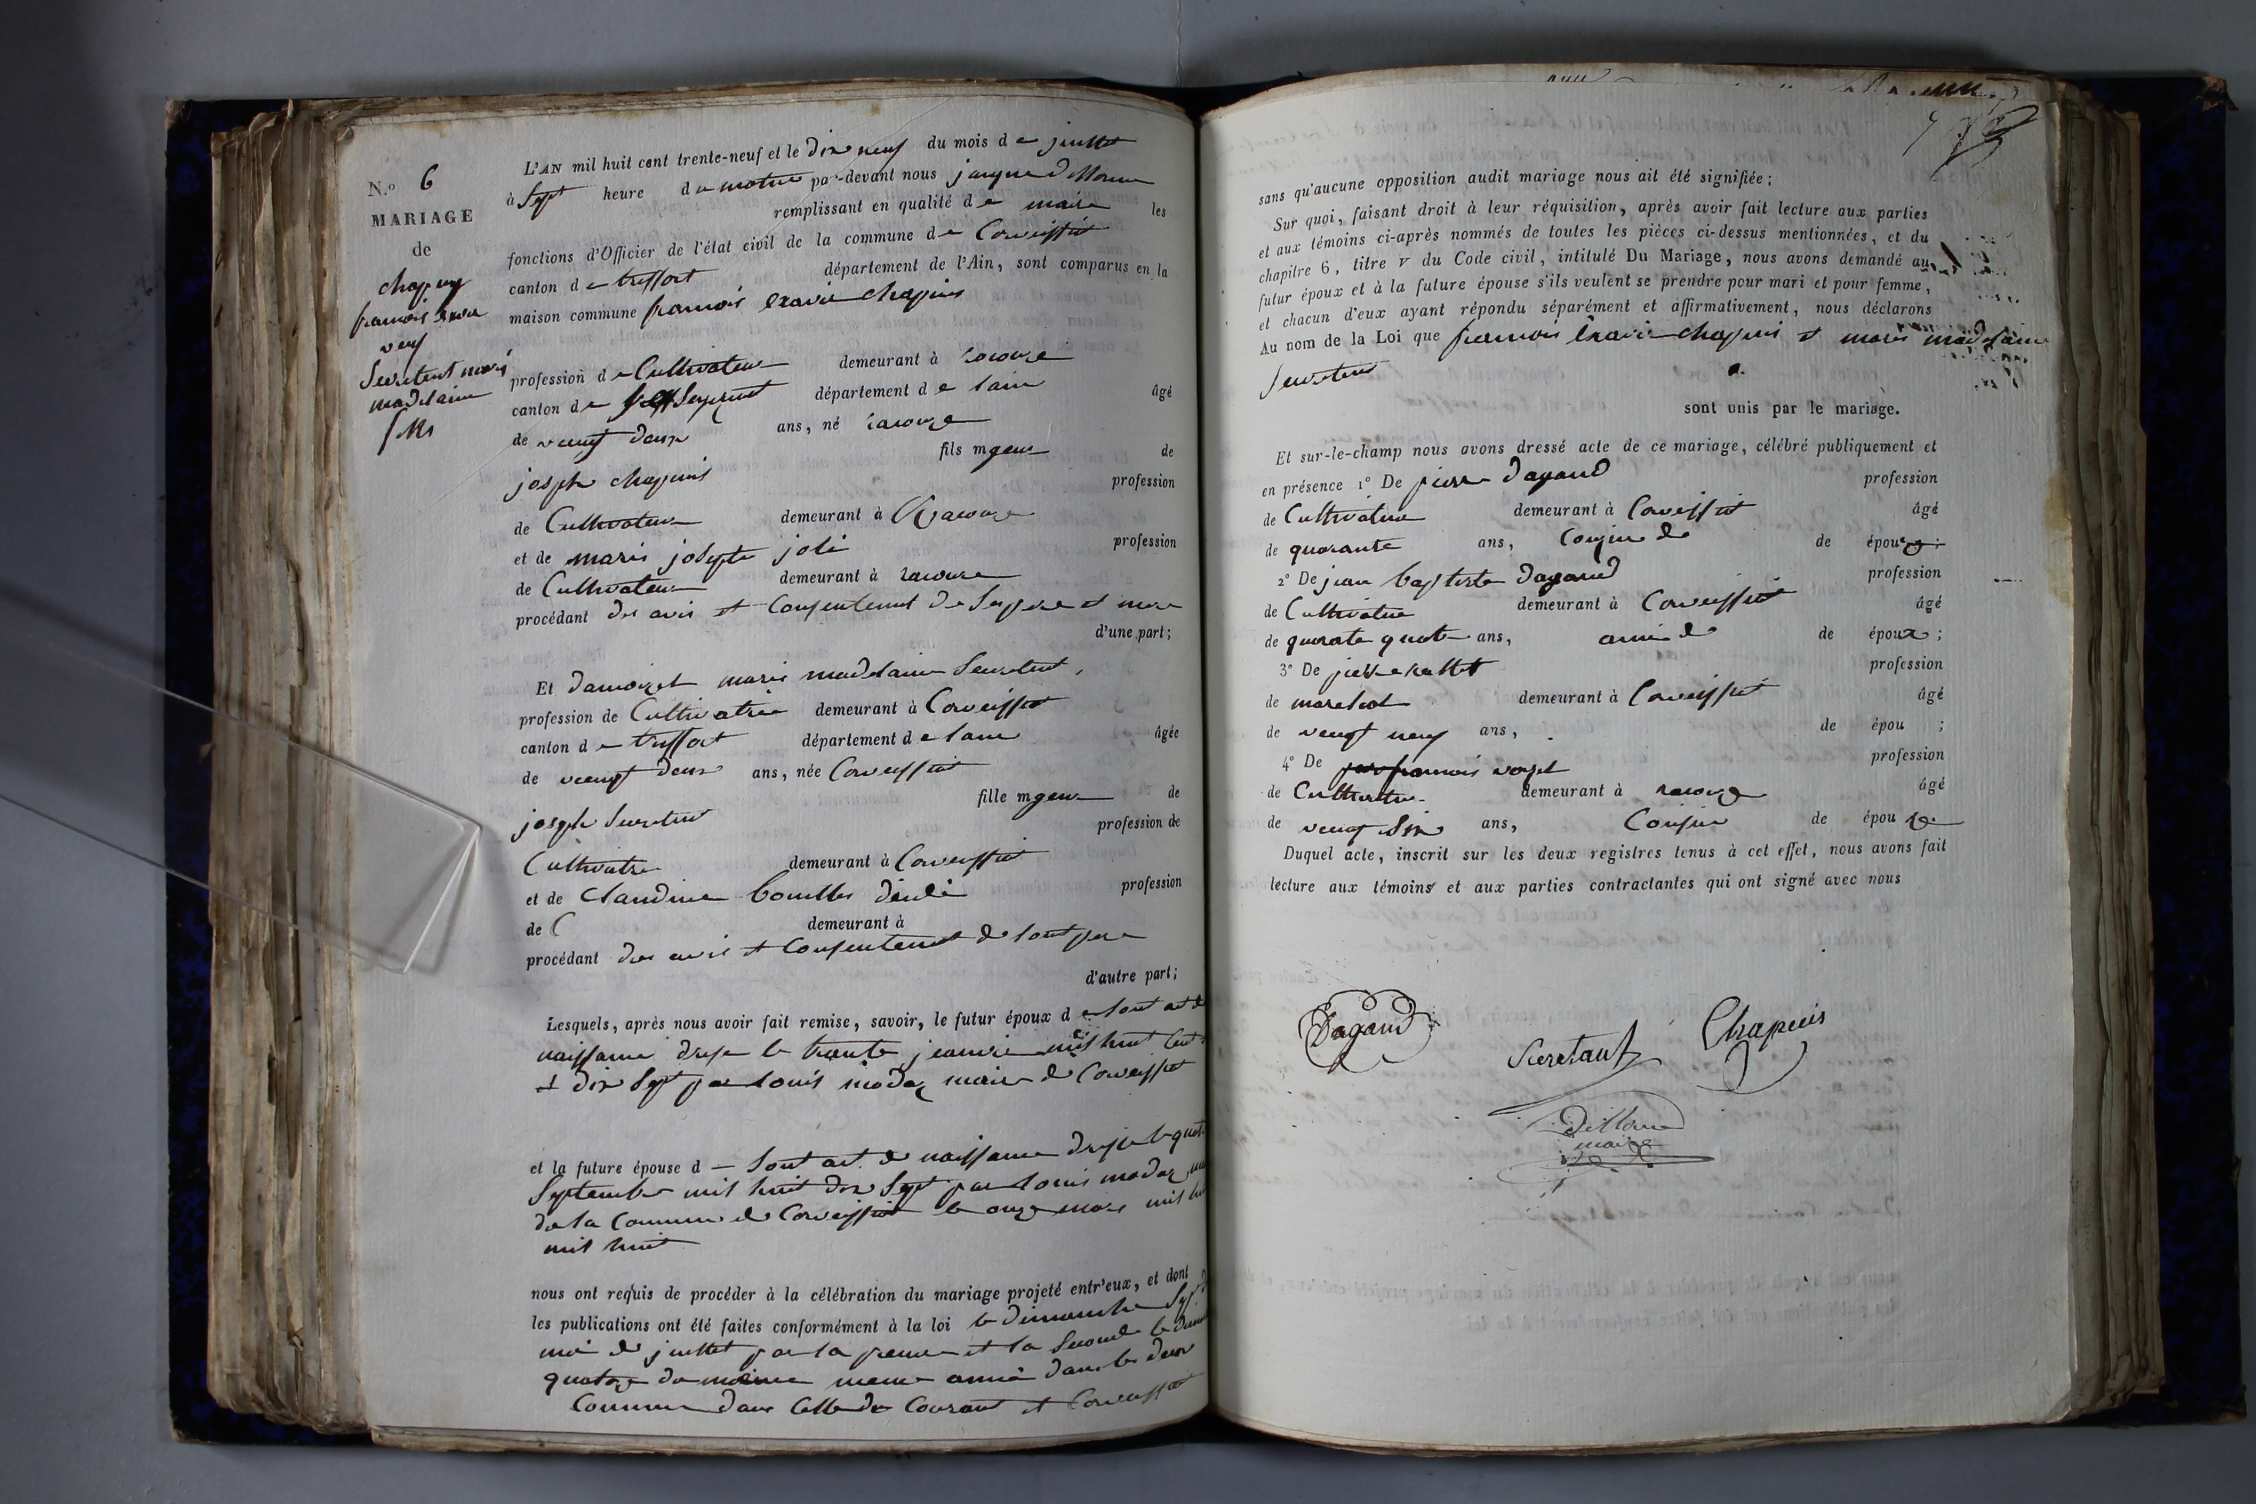 N.° 6
MARIAGE
de
chapuy
francois
Secretent marie
madelaine
L'AN mil huit cent trente-neuf et le dix neuf du mois de juillet
à Sept heure du matin par-devant nous
remplissant en qualité de maire les
fonctions d'Officier de l'état civil de la commune de Corveissiat
canton de treffort département de l'Ain, sont comparus en la
maison commune francois Exavie chapuis
profession de Cultivateur demeurant à
canton de département de lain âgé
de veingt deux ans, né
fils mgeur de
joseph chapuis profession
de Cultivateur demeurant à
et de marie josepte joli profession
de Cultivateur demeurant à
procédant des avis et Consentement de Ses pere et mere
d'une part;
Et damoizel marie madelaine Secretent,
profession de Cultivatrice demeurant à Corveissiat
canton de treffort département de lain âgée
de veingt deux ans, née Corveissiat
fille mgeur de
joseph Secretent profession de
Cultivatr demeurant à Corveissiat
et de Claudine profession
de demeurant à
procédant des avis et Consentement de Sont pere
d'autre part;
Lesquels, après nous avoir fait remise, savoir, le futur époux de Sont act de
naissance dresse le trante mil huit Cent
et dix Sept par Louis modaz maire de Corveissiat
et la future épouse d Sont act de naissance dresse le
Septembre mil huit dix Sept par Louis modaz
de la Commune de Corveissiat le onze mars mil
mil huit
nous ont requis de procéder à la célébration du mariage projeté entr'eux, et dont
les publications ont été faites conformément à la loi le dimanche Sept
de juillet et la Seconde le
quatorze du meme année dans les deux
Commune dans Celle de et Corveissiat
sans qu'aucune opposition audit mariage nous ait été signifiée;
Sur quoi, faisant droit à leur réquisition, après avoir fait lecture aux parties
et aux témoins ci-après nommés de toutes les pièces ci-dessus mentionnées, et du
chapitre 6, titre v du Code civil, intitulé Du Mariage, nous avons demandé au
futur époux et à la future épouse s'ils veulent se prendre pour mari et pour femme,
et chacun d'eux ayant répondu séparément et affirmativement, nous déclarons
Au nom de la Loi que francois Exavie chapuis et marie madelaine
Secretent
sont unis par le mariage.
Et sur-le-champ nous avons dressé acte de ce mariage, célébré publiquement et
en présence 1° De pierre dagand profession
de Cultivateur demeurant à Corveissiat âgé
de quarante ans, Cousin de de épou
2° De jean baptiste dagand profession
de Cultivateur demeurant à Corveissiat âgé
de quarate quatr ans, ami de de époux;
3° De pierre profession
de marchal demeurant à Corveissiat âgé
de veingt neuf ans, de épou ;
4° De francois profession
de Cultivateur demeurant à âgé
de veingt Six ans, Cousin de épou
Duquel acte, inscrit sur les deux registres tenus à cet effet, nous avons fait
lecture aux témoins et aux parties contractantes qui ont signé avec nous
Dagand Secretant Chapuis
maire